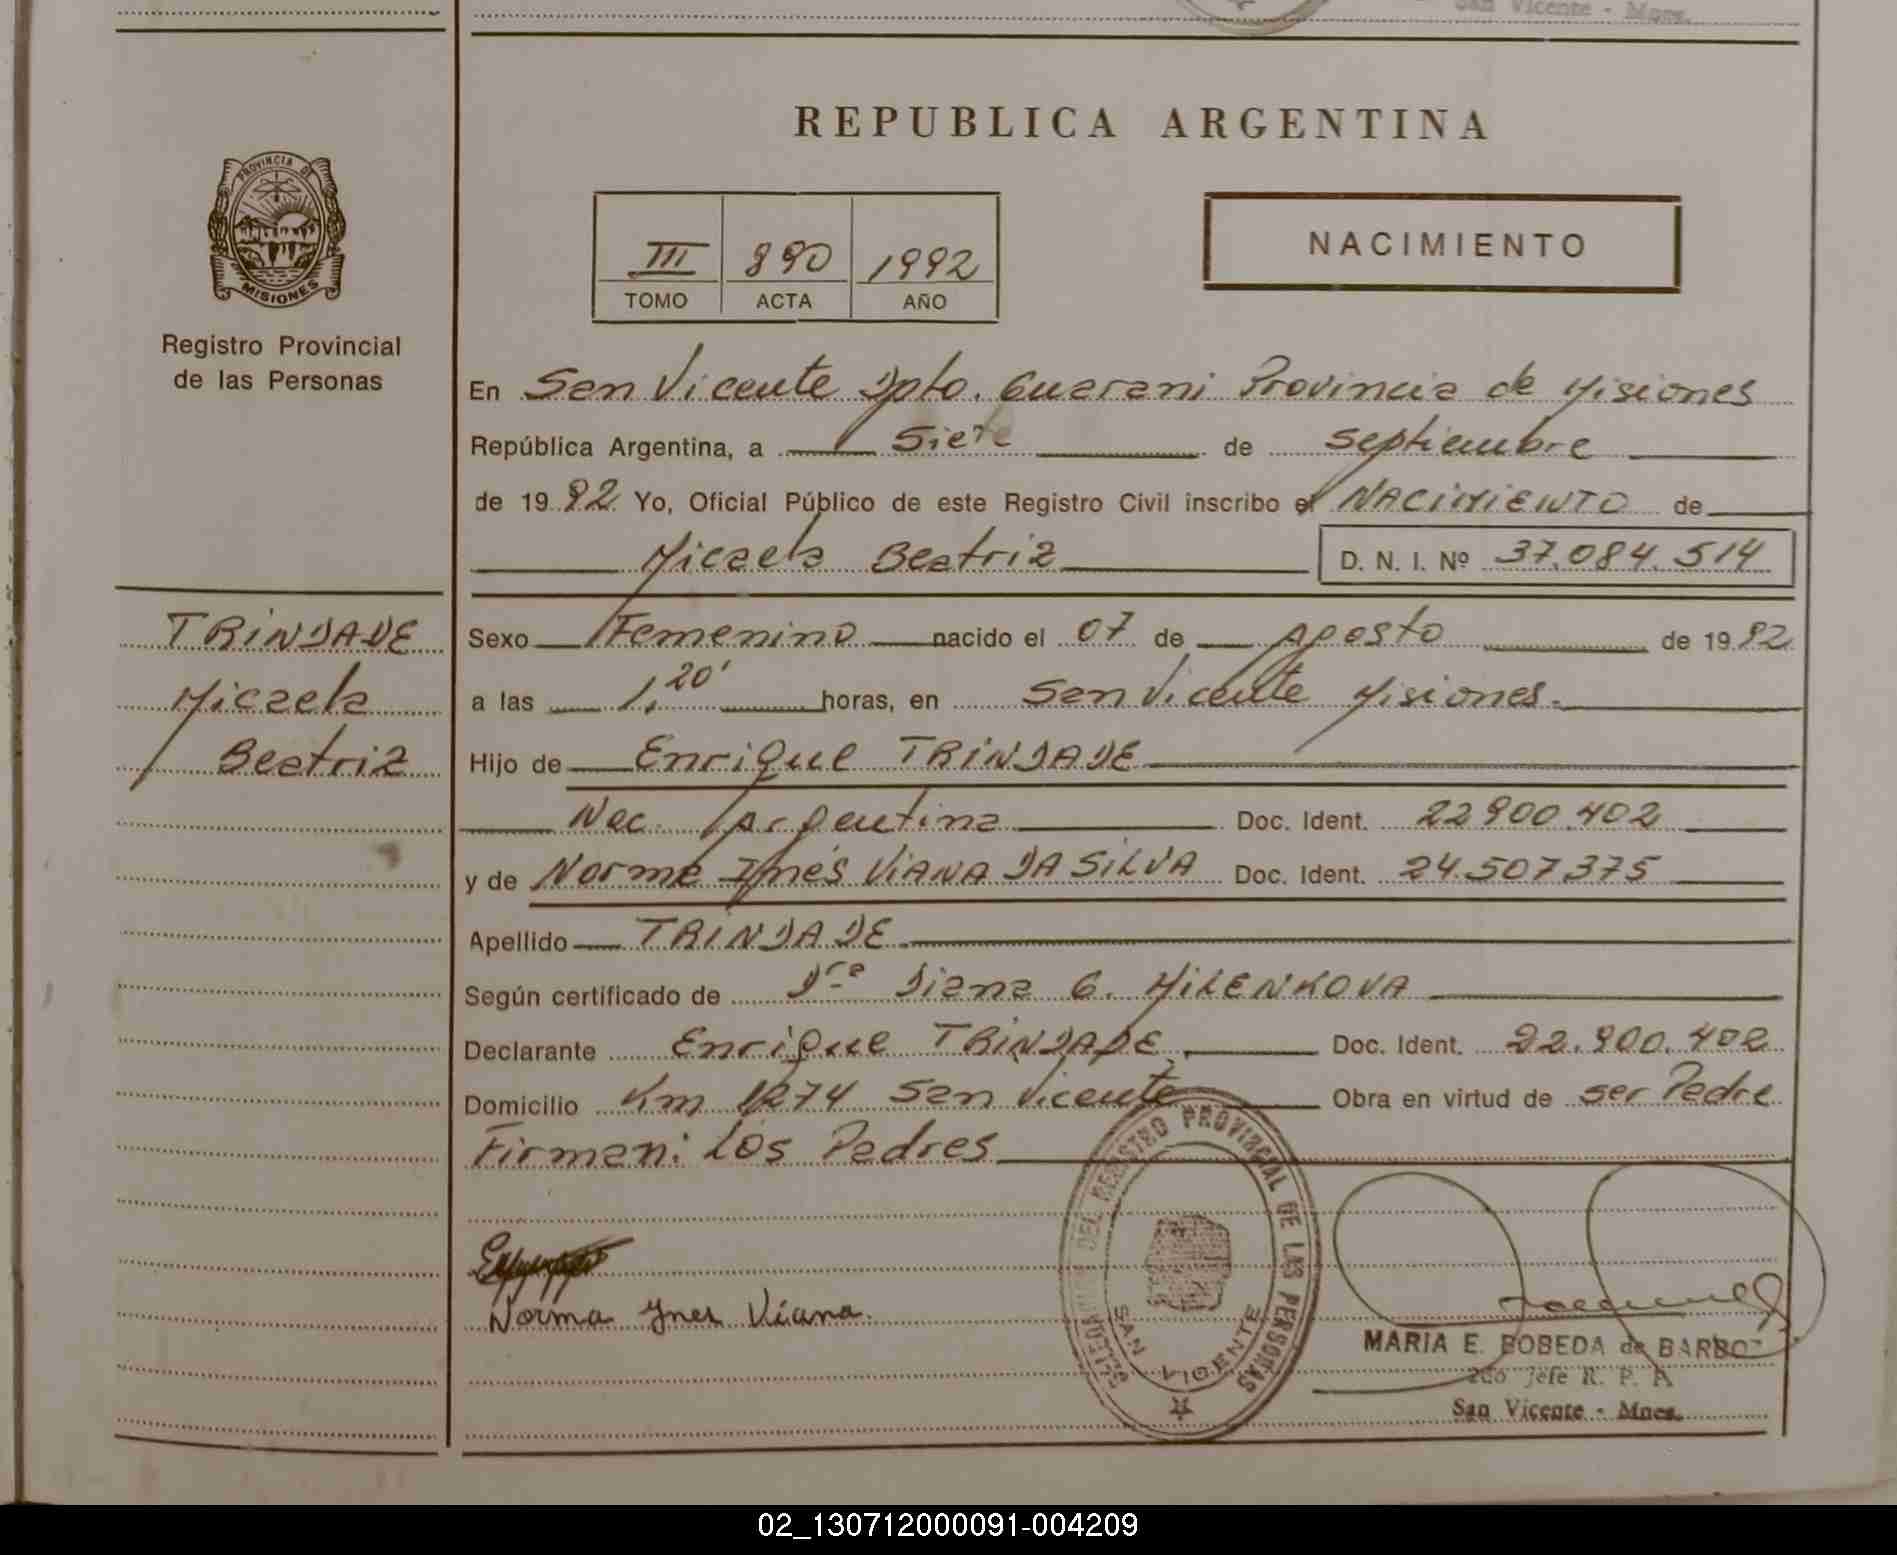 San Vicente - Mnes.
REPUBLICA ARGENTINA
PROVINCIA DE
MISIONES
Registro Provincial
de las Personas
III 890 1992
TOMO ACTA AÑO
NACIMIENTO
En San Vicente Dpto. Guarani Provincia de Misiones
República Argentina, a Siete de Septiembre
de 1992 Yo, Oficial Público de este Registro Civil inscribo el NACIMIENTO de
Micaela Beatriz D. N. I. Nº 37.084.514
TRINDADE
Micaela
Beatriz
Sexo Femenino nacido el 07 de Agosto de 1992
a las 1,20' horas, en San Vicente Misiones.
Hijo de Enrique TRINDADE
Nac. Argentina Doc. Ident. 22900.402
y de Norma Inés VIANA DA SILVA Doc. Ident. 24.507.375
Apellido TRINDADE
Según certificado de Dra Diana G. MILENKOVA
Declarante Enrique TRINDADE, Doc. Ident. 22.900.402
Domicilio Km 1274 San Vicente Obra en virtud de ser Padre
Firman: Los Padres
Norma Ynes Viana.
DELEGACION DEL REGISTRO PROVINCIAL DE LAS PERSONAS
SAN VICENTE
MARIA E. BOBEDA de BARBOZ
2do Jefe R. P. P.
San Vicente - Mnes.
02_130712000091-004209